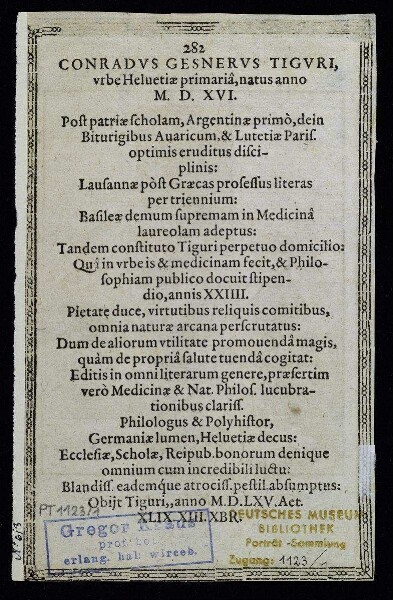 282
CONRADVS GESNERVS TIGVRI,
vrbe Heluetiæ primariâ, natus anno
M. D. XVI.
Post patriæ scholam, Argentinæ primò, dein
Biturigibus Avaricum, & Lutetiæ Paris.
optimis eruditus disci-
plinis:
Lausannæ pòst Græcas professus literas
per triennium:
Basileæ demum supremam in Medicinâ
laureolam adeptus:
Tandem constituto Tiguri perpetuo domicilio:
Quî in vrbe is & medicinam fecit, & Philo-
sophiam publico docuit stipen-
dio, annis XXIIII.
Pietate duce, virtutibus reliquis comitibus,
omnia naturæ arcana perscrutatus:
Dum de aliorum vtilitate promouendâ magis,
quàm de propriâ salute tuendâ cogitat:
Editis in omni literarum genere, præsertim
verò Medicinæ & Nat. Philos. lucubra-
tionibus clariss.
Philologus & Polyhistor,
Germaniæ lumen, Heluetiæ decus:
Ecclesiæ, Scholæ, Reipub. bonorum denique
omnium cum incredibili luctu:
Blandiss. eademque atrociss. pestil. absumptus:
Obijt Tiguri, anno M.D.LXV. Aet.
XLIX. XIII. XBR.
PT 1123/1
Gregor Kraus
prof. bot.
erlang. hab wirceb.
DEUTSCHES MUSEUM
BIBLIOTHEK
Porträt-Sammlung
Zugang: 1123/